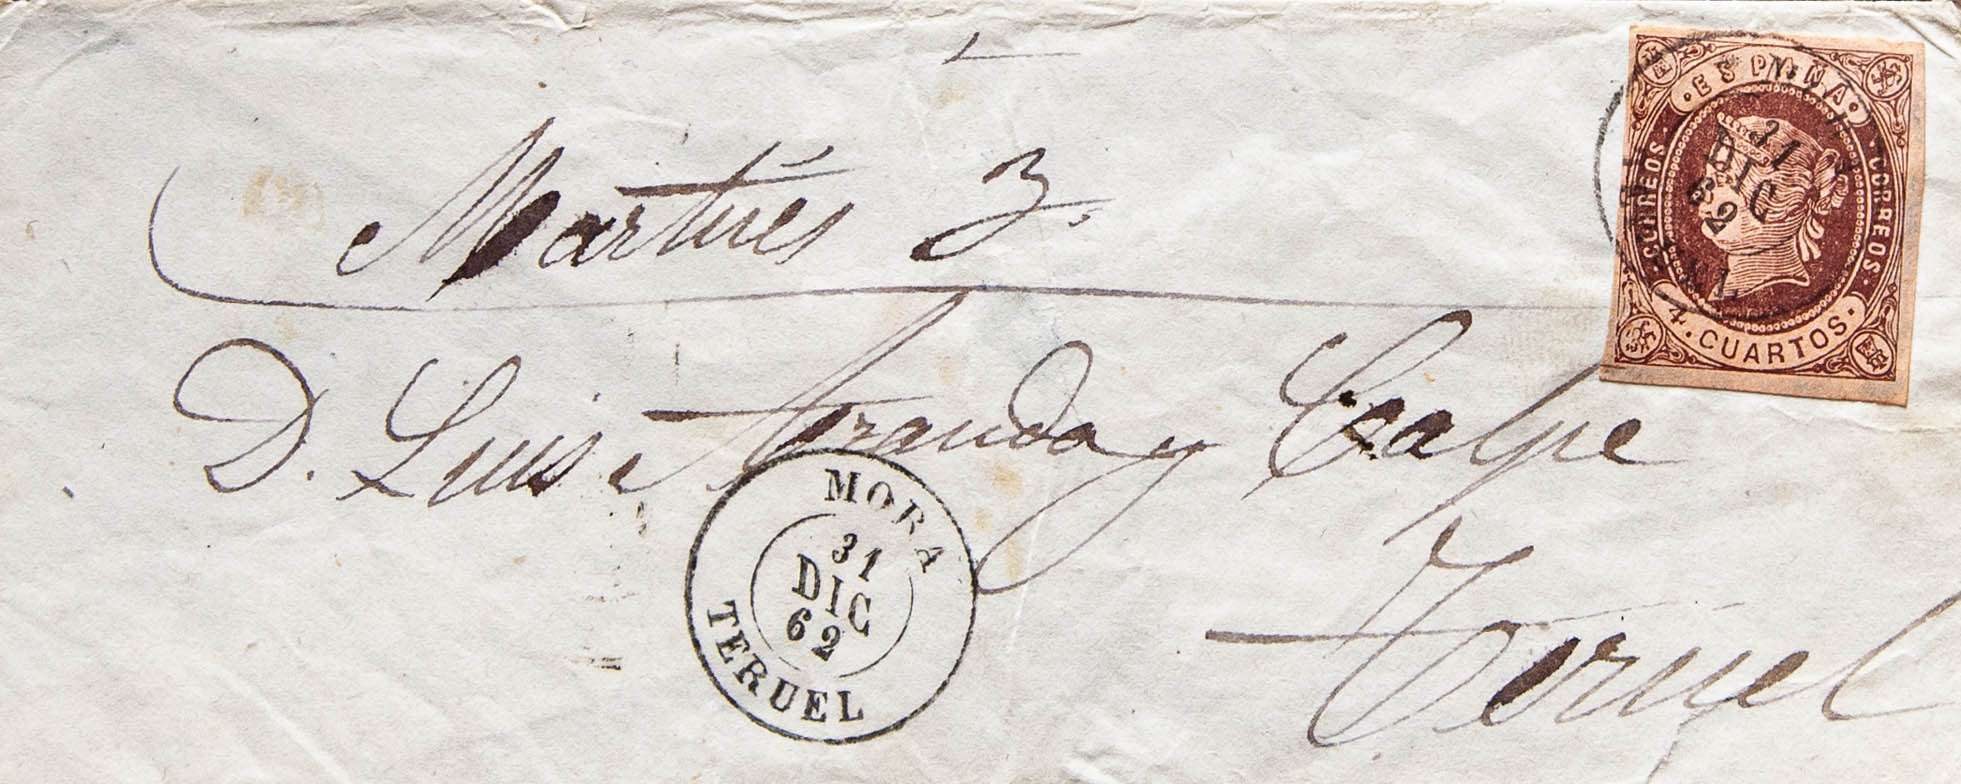 Martires 3.
D. Luis Aranda y Calpe
Teruel
MORA
31
DIC
62
TERUEL
ESPAÑA
CORREOS
CORREOS
4. CUARTOS.
31
DIC
62